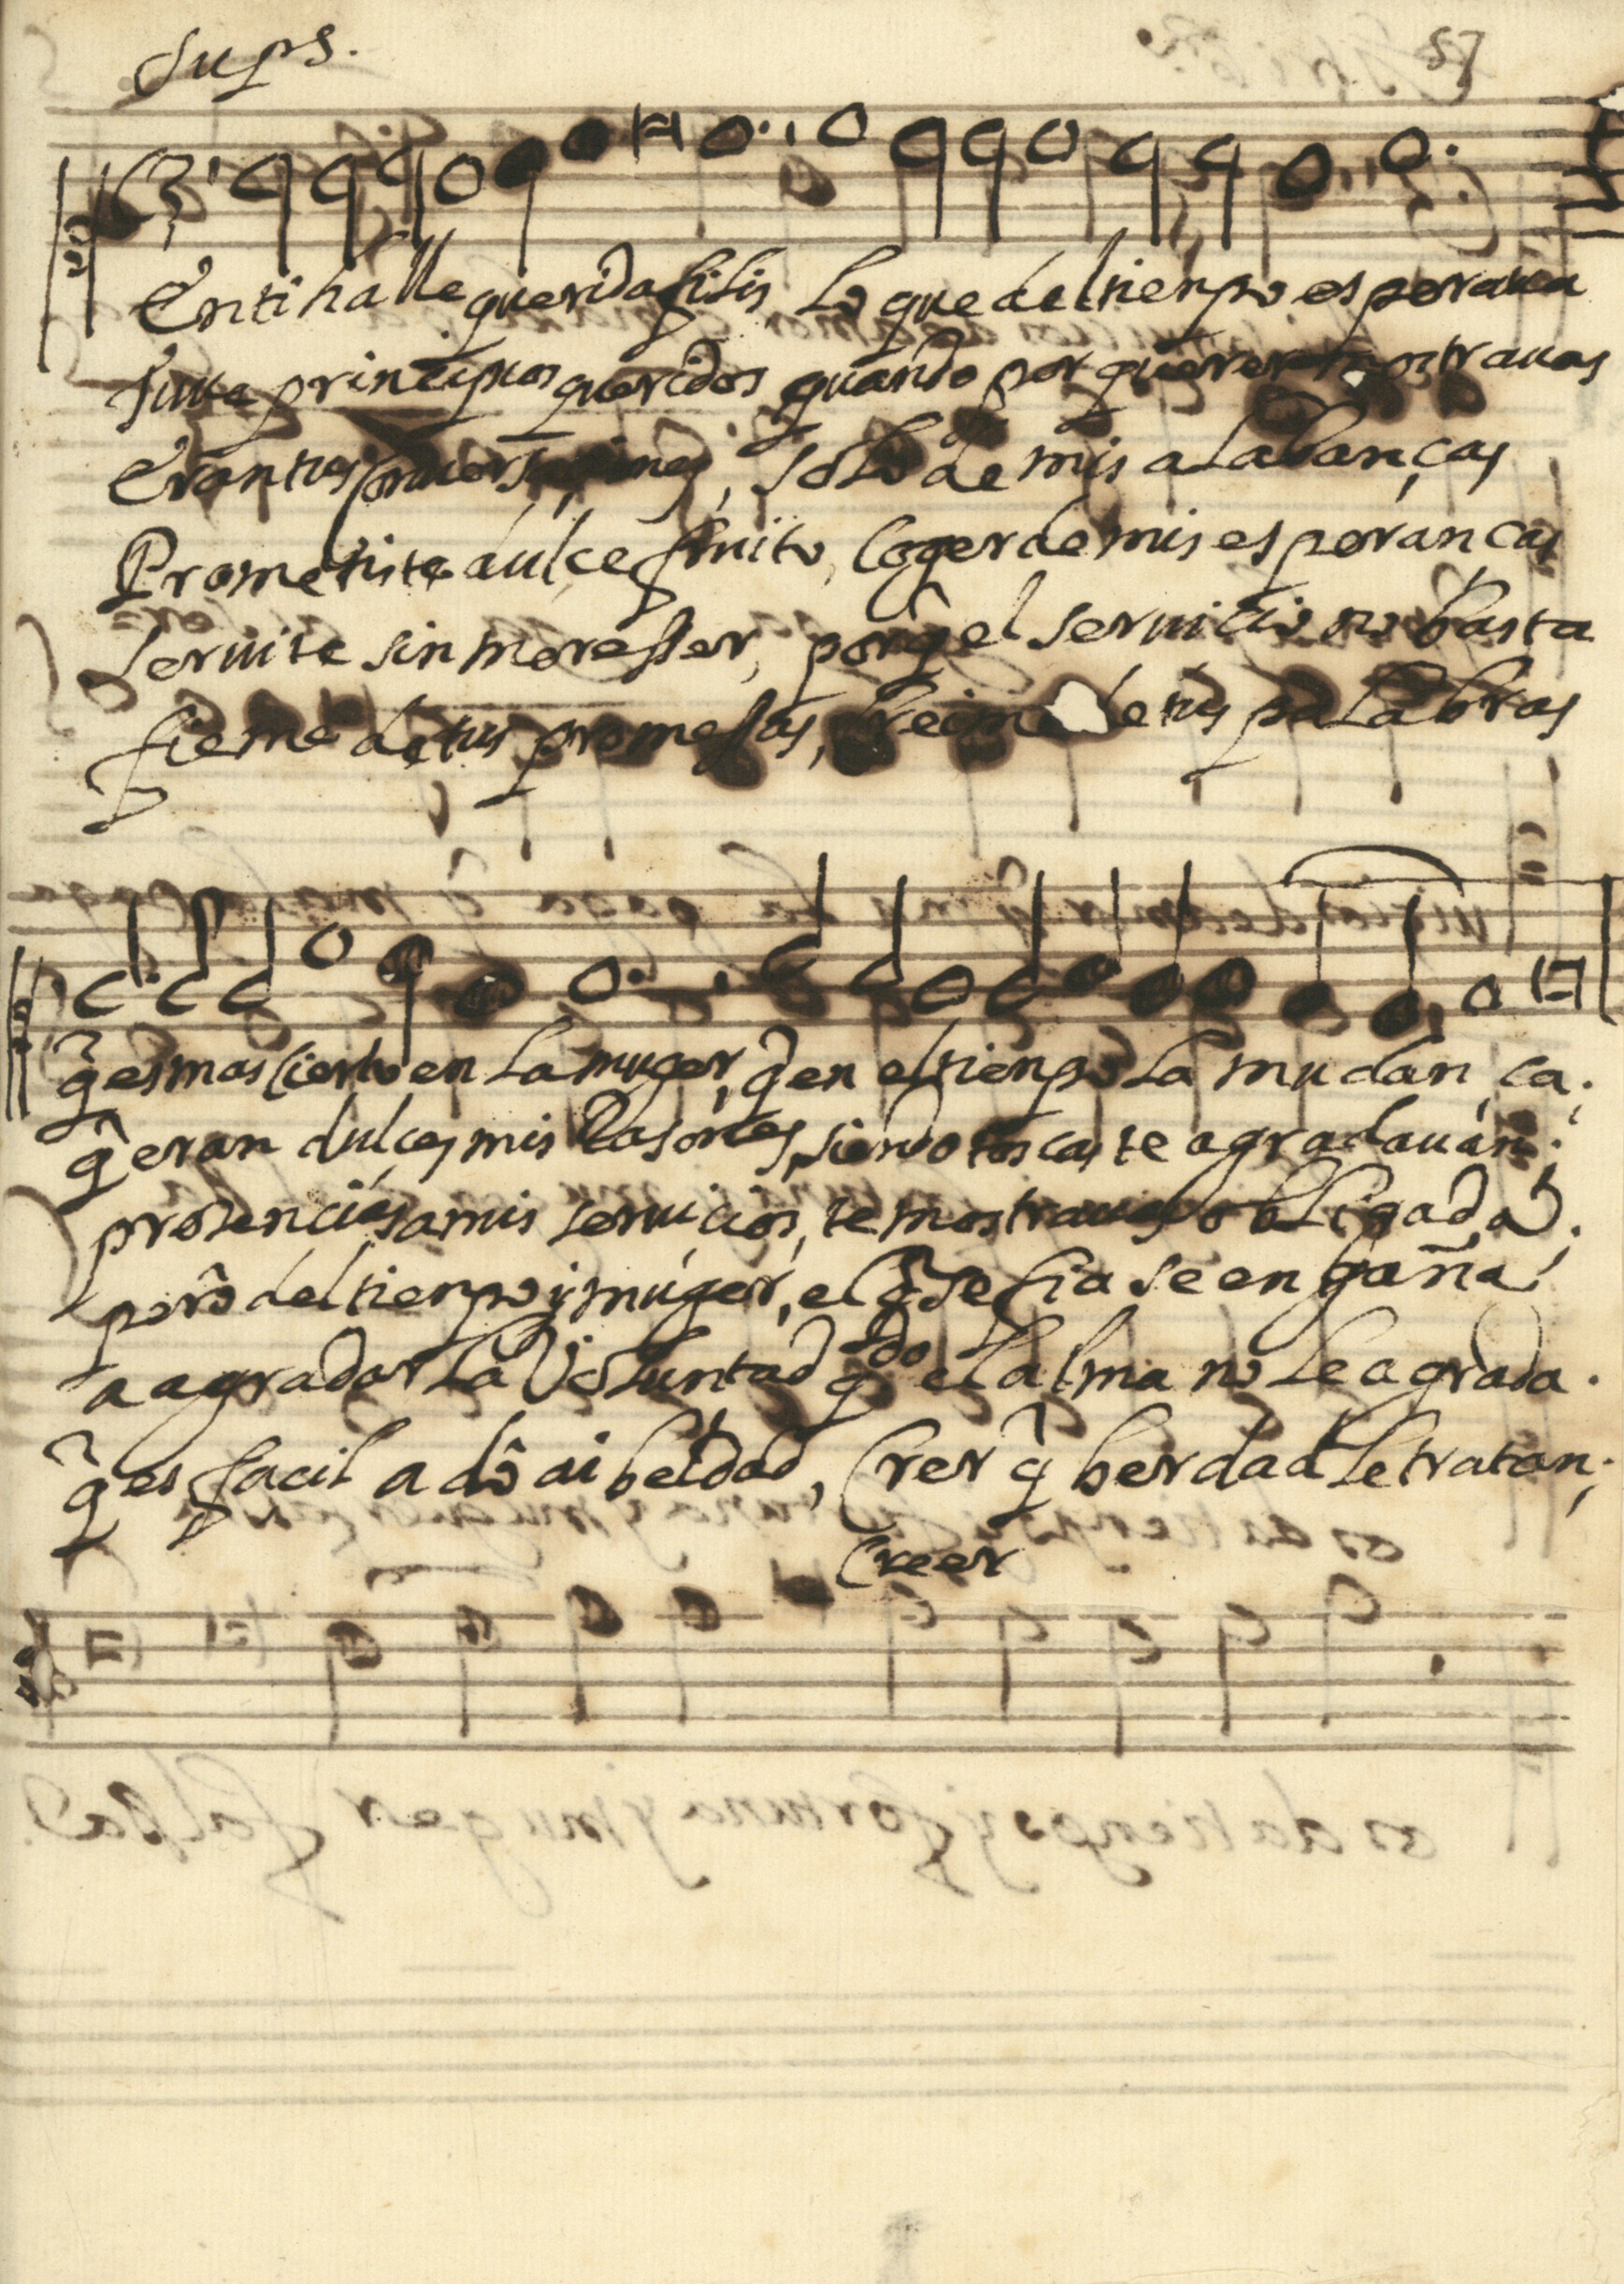 Sups.
57
En ti halle querida filis lo que del tienpo esperaua
tuue principios queridos quando por querer mostrauas
Eran tus conuersaçiones, solo de mis alabanças
Prometiste dulce fruito, coger de mis esperancas
Seruite sin moresser, porq̃ el seruicio no basta
fieme de tus promessas, creime de tus palabras
q̃ es mas cierto en la muger, q̃ en el tienpo la mudan ca.
q̃ eran dulces mis rasones, siendo toscas te agradauan.
presencias a mis seruicios, te mostrauas obligada.
pero del tienpo y muger, el q̃ se fia se engaña.
a agradar la Voluntad qdo el alma no le agrada.
q̃ es facil a do ai beldad, Crer q̃ berdad le tratan.
Creer